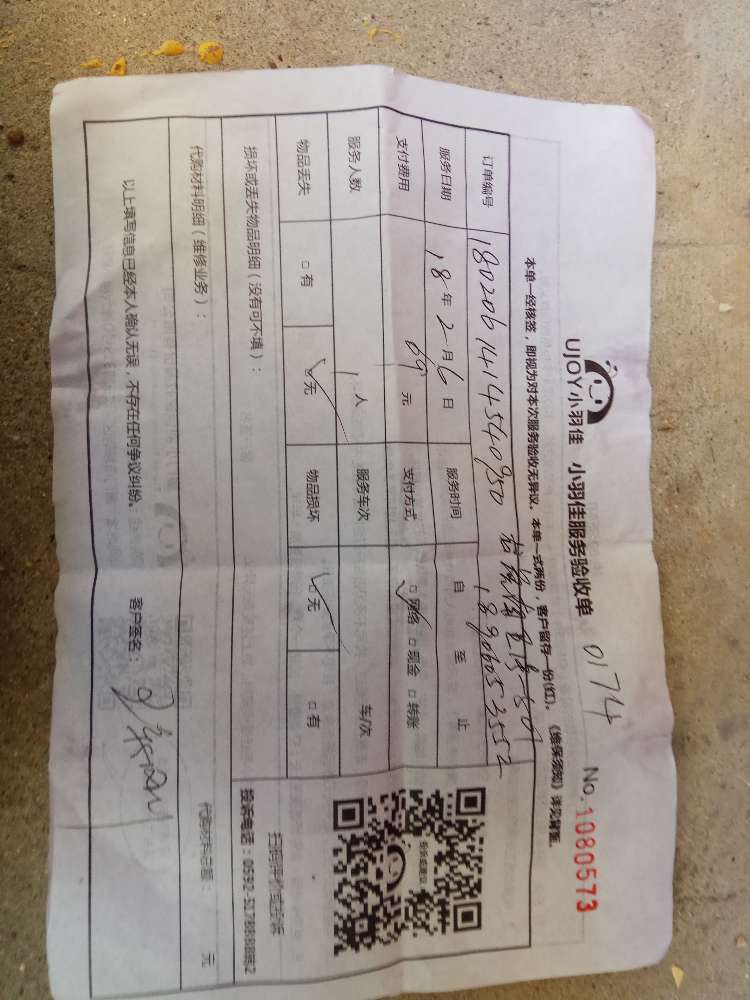 UJOY小羽佳 小羽佳服务验收单 01774 No.1080573
本单一经核签，即视为对本次服务验收无异议。本单一式两份，客户留存一份(红)。《维保须知》详见背面。
订单编号 1802061414540950 18906053552
服务日期 18年2月6日 服务时间 自 至 止
支付费用 69元 支付方式 □网络 □现金 □转账
服务人数 1人 服务车次 车/次
物品丢失 □有 □无 物品损坏 □无 □有
损坏或丢失物品明细（没有可不填）：
代购材料明细（维修业务）： 代购材料总额： 元
以上填写信息已经本人确认无误，不存在任何争议纠纷。 客户签名：
投诉或建议
扫码评价或投诉
投诉电话：0592-5178888转2